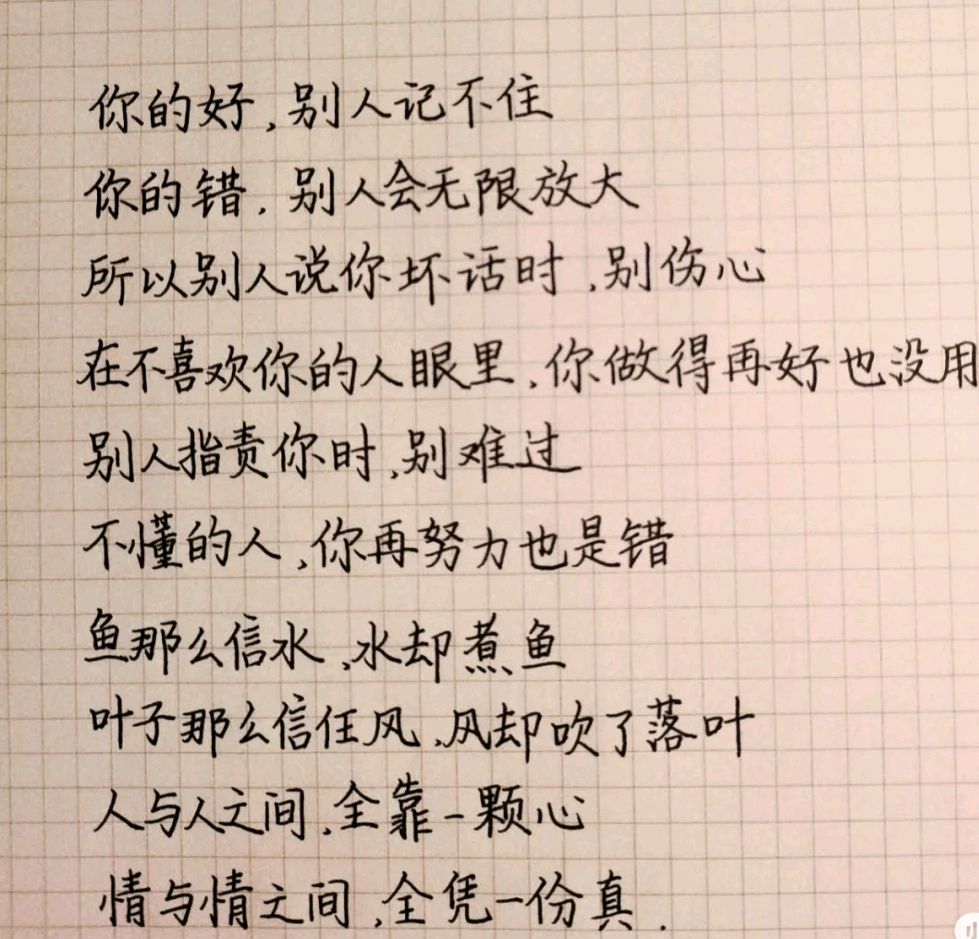 你的好,别人记不住
你的错,别人会无限放大
所以别人说你坏话时,别伤心
在不喜欢你的人眼里,你做得再好也没用
别人指责你时,别难过
不懂的人,你再努力也是错
鱼那么信水,水却煮鱼
叶子那么信任风,风却吹了落叶
人与人之间,全靠一颗心
情与情之间,全凭一份真.